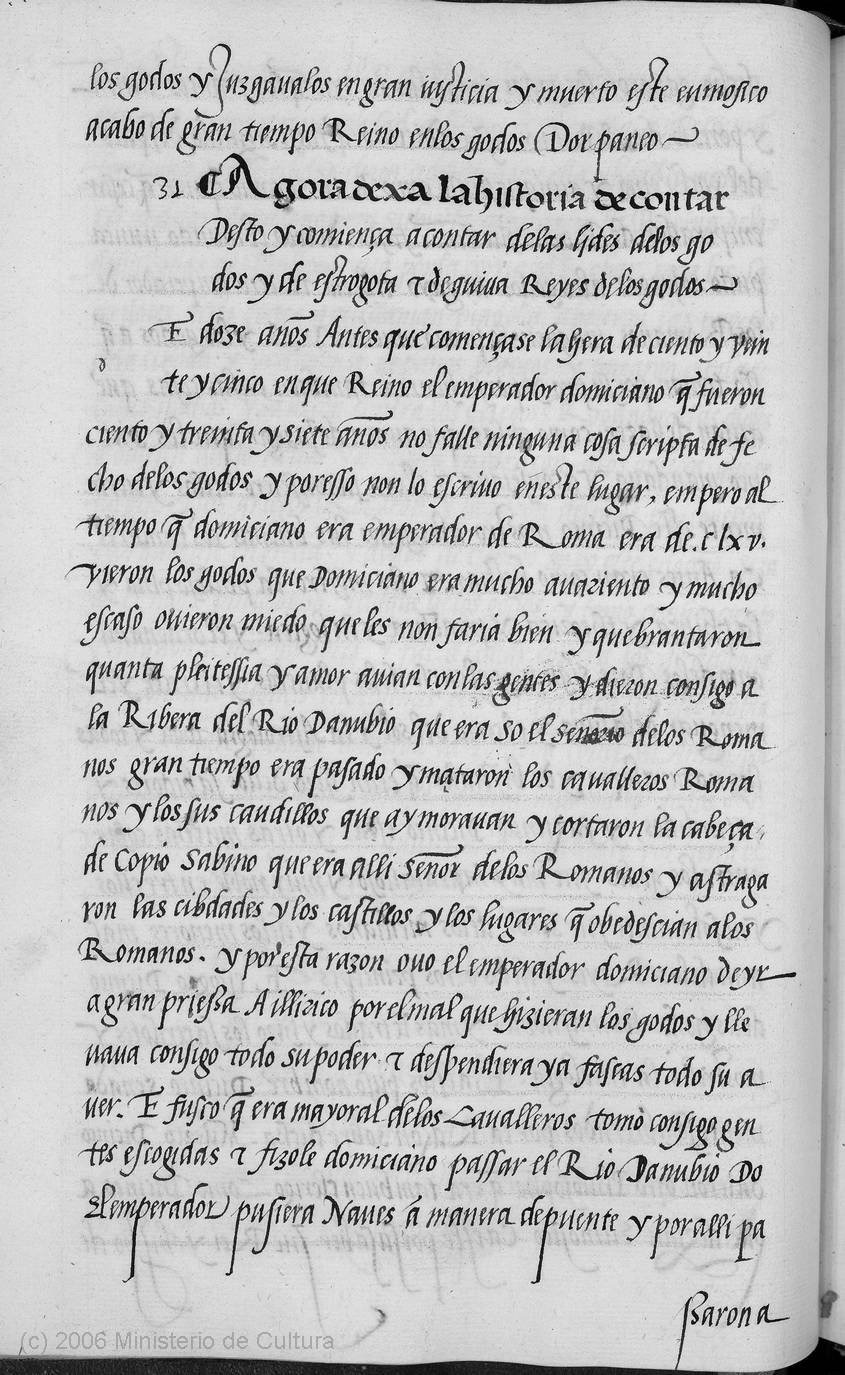 los godos y Juzgaualos en gran iusticia y muerto este eumosico
acabo de gran tiempo Reino en los godos Dorpaneo
31 Agora dexa la historia de contar
Desto y comiença a contar de las lides de los go
dos y de estrogota τ de guiua Reyes de los godos
E doze años Antes que començase la hera de ciento y vein
te y cinco en que Reino el emperador domiciano q̃ fueron
ciento y treinta y siete años no falle ninguna cosa scripta de fe
cho de los godos y poresso non lo escriuo en este lugar, empero al
tiempo q̃ domiciano era emperador de Roma era de .clxv.
vieron los godos que Domiciano era mucho auariento y mucho
escaso ouieron miedo que les non faria bien y quebrantaron
quanta pleitessia y amor auian con las gentes y dieron consigo a
la Ribera del Rio Danubio que era so el señorio de los Roma
nos gran tiempo era pasado y mataron los caualleros Roma
nos y los sus caudillos que ay morauan y cortaron la cabeça
de Copio Sabino que era alli Señor de los Romanos y astraga
ron las cibdades y los castillos y los lugares q̃ obedescian a los
Romanos. y por esta razon ouo el emperador domiciano de yr
a gran priessa A illirico por el mal que hizieran los godos y lle
uaua consigo todo su poder τ despendiera ya fascas todo su a
uer. E fusco q̃ era mayoral de los Caualleros tomo consigo gen
tes escogidas τ fizole domiciano passar el Rio Danubio Do
El emperador pusiera Naues a manera de puente y por alli pa
ssarona
(c) 2006 Ministerio de Cultura